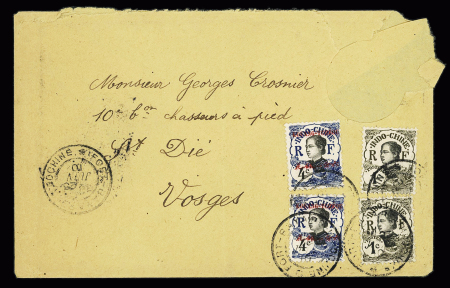 Monsieur Georges Crosnier
10e bon chasseurs à pied
St Dié
Vosges
INDO-CHINE
R F
4c
INDO-CHINE
R F
INDO-CHINE
R F
4c
INDO-CHINE
R F
1c